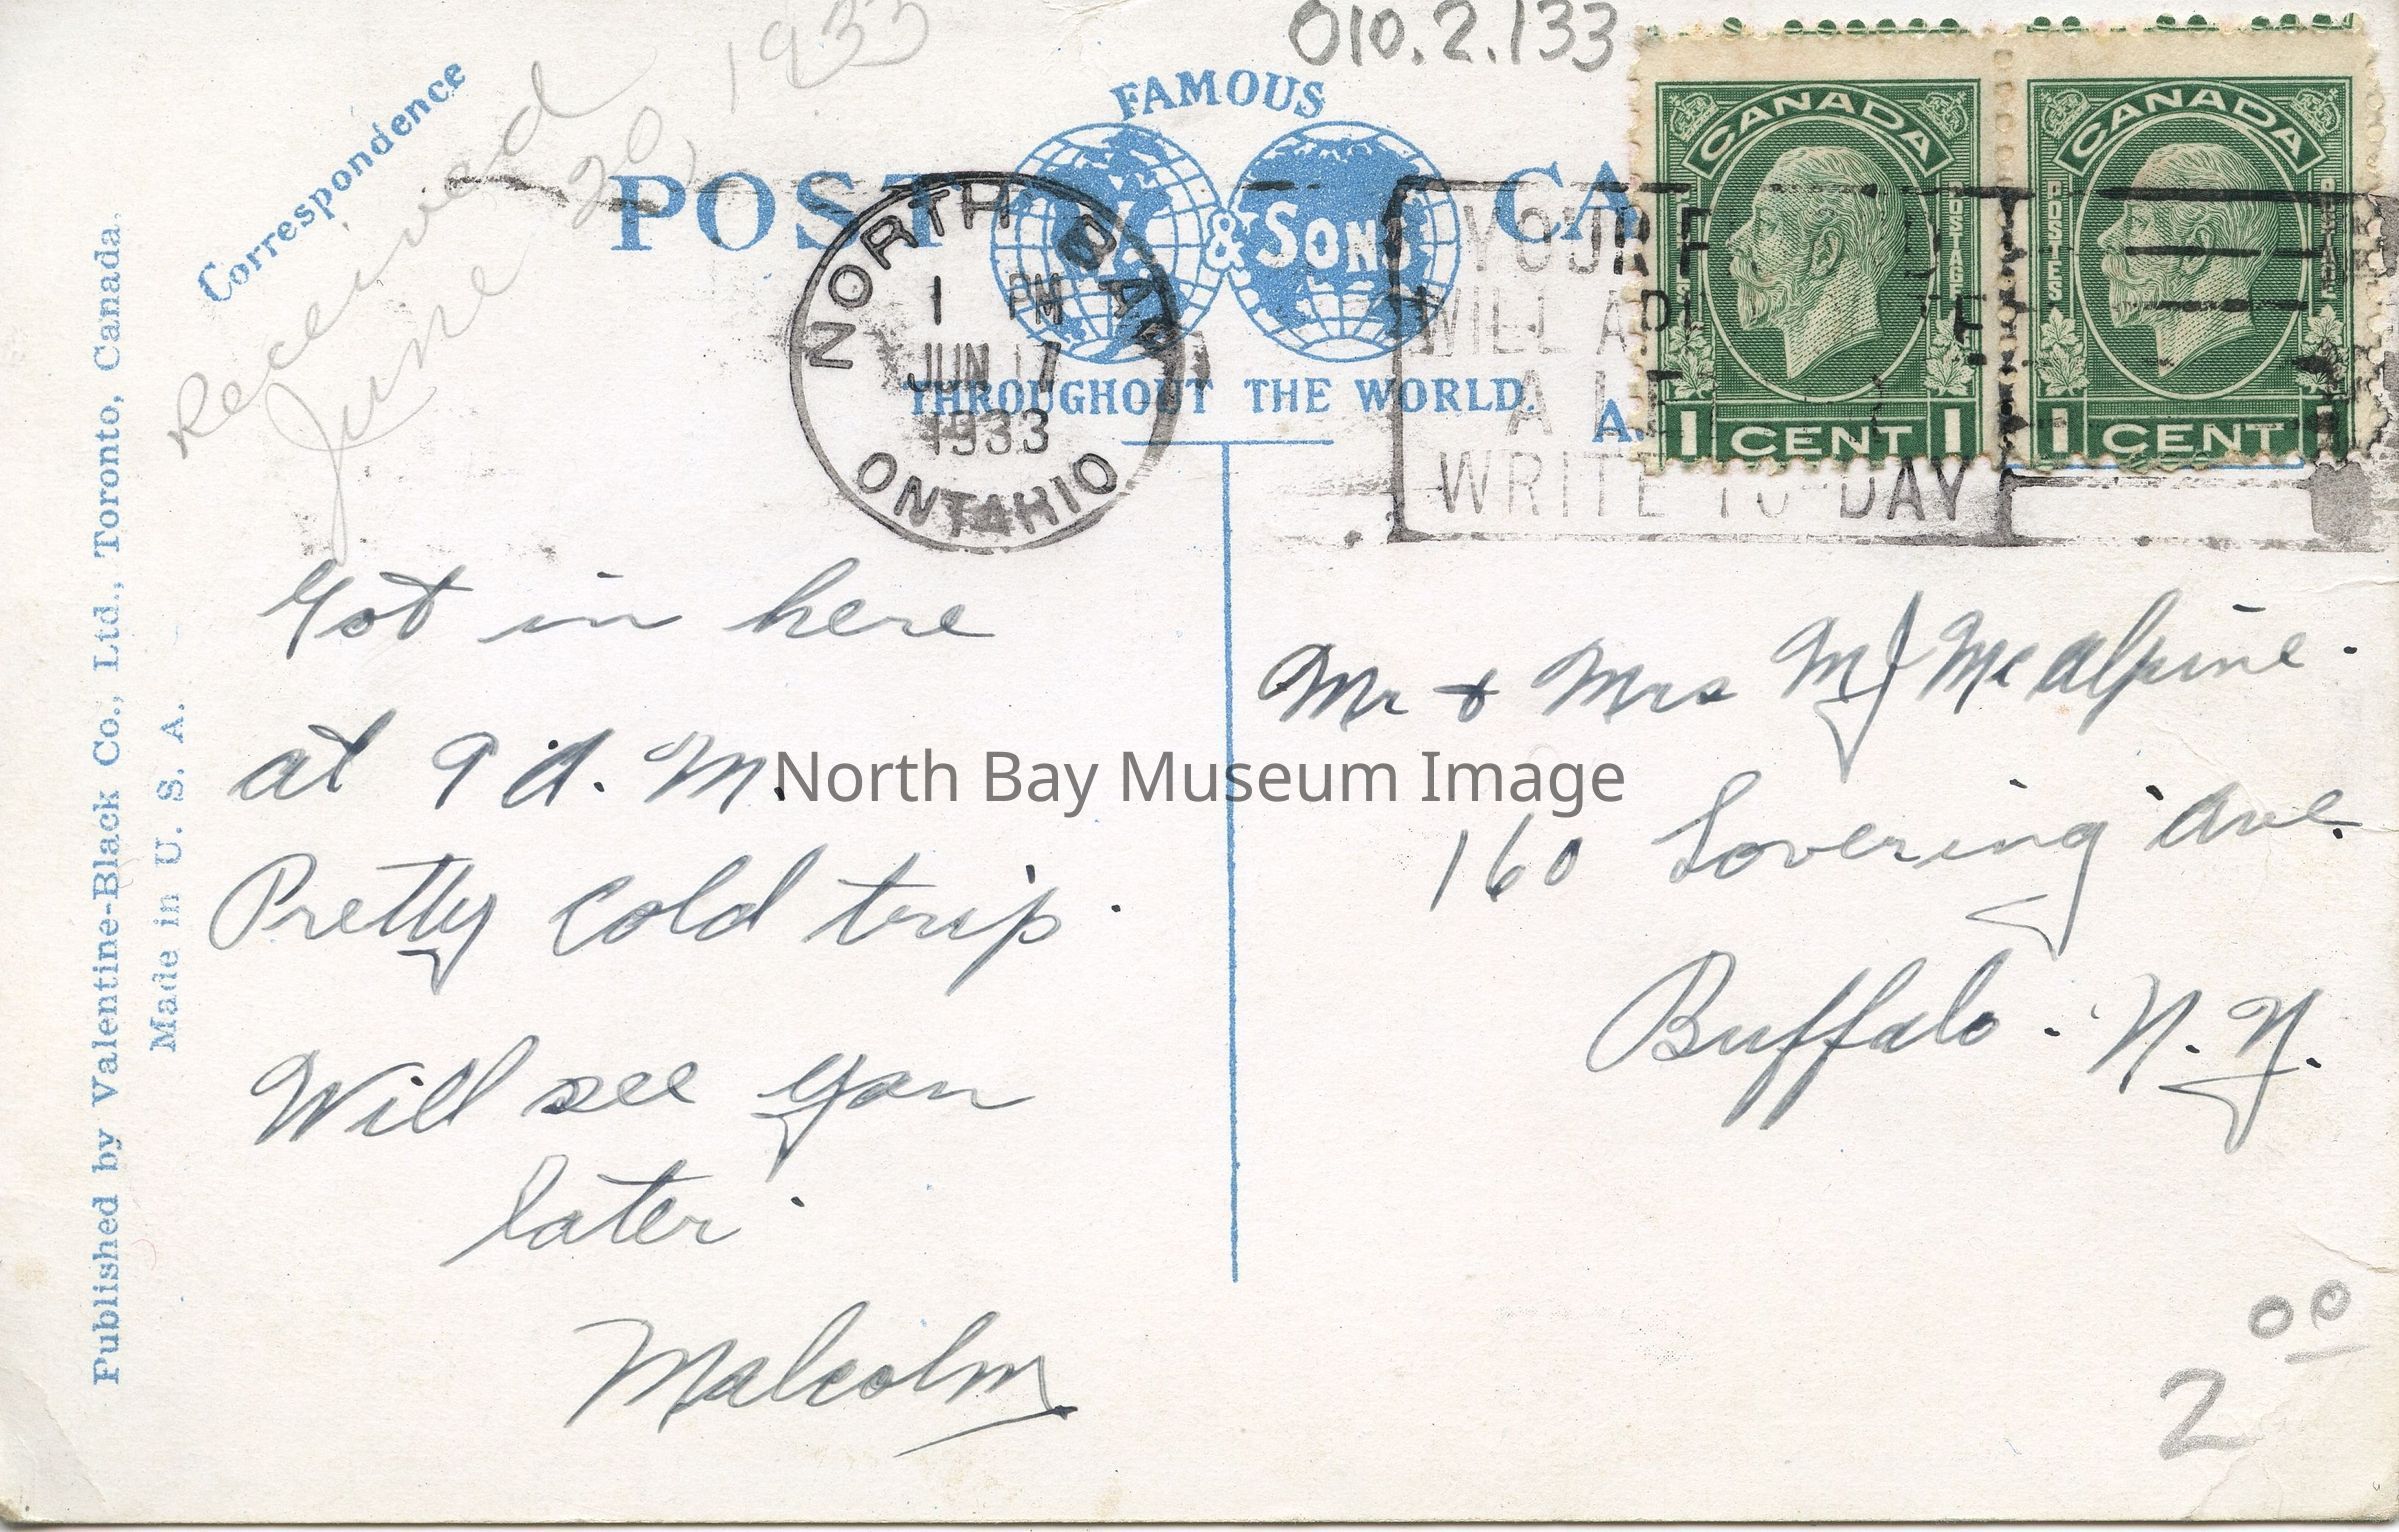 010.2.133
Received
June 20, 1933
Correspondence
FAMOUS
POST CA
& SONS
THROUGHOUT THE WORLD.
A.
NORTH BAY
1 PM
JUN 17
1933
ONTARIO
YOUR
WILL
A
WRITE TO-DAY
CANADA
POSTES POSTAGE
1 CENT 1
CANADA
POSTES POSTAGE
1 CENT 1
Published by Valentine-Black Co., Ltd., Toronto, Canada.
Made in U. S. A.
Got in here
at 9 A. M.
Pretty cold trip.
Will see you
later.
Malcolm
Mr & Mrs M J McAlpine.
160 Lovering Ave.
Buffalo. N. Y.
North Bay Museum Image
2 00